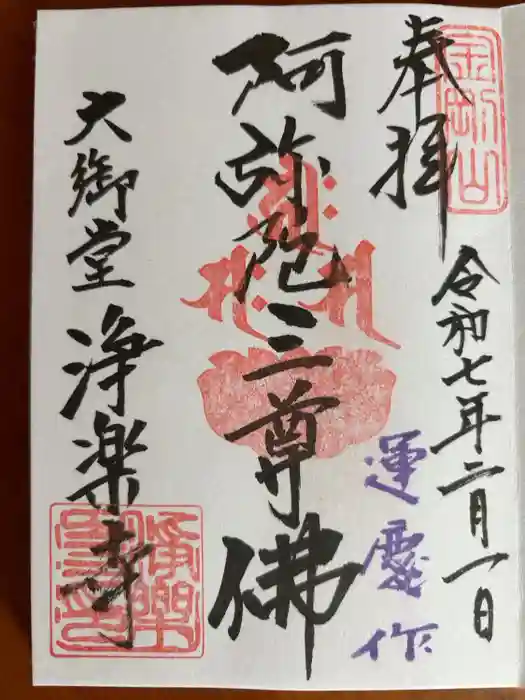 奉拝
金剛山
令和七年二月一日
阿弥陀三尊佛
運慶作
大御堂 浄楽寺